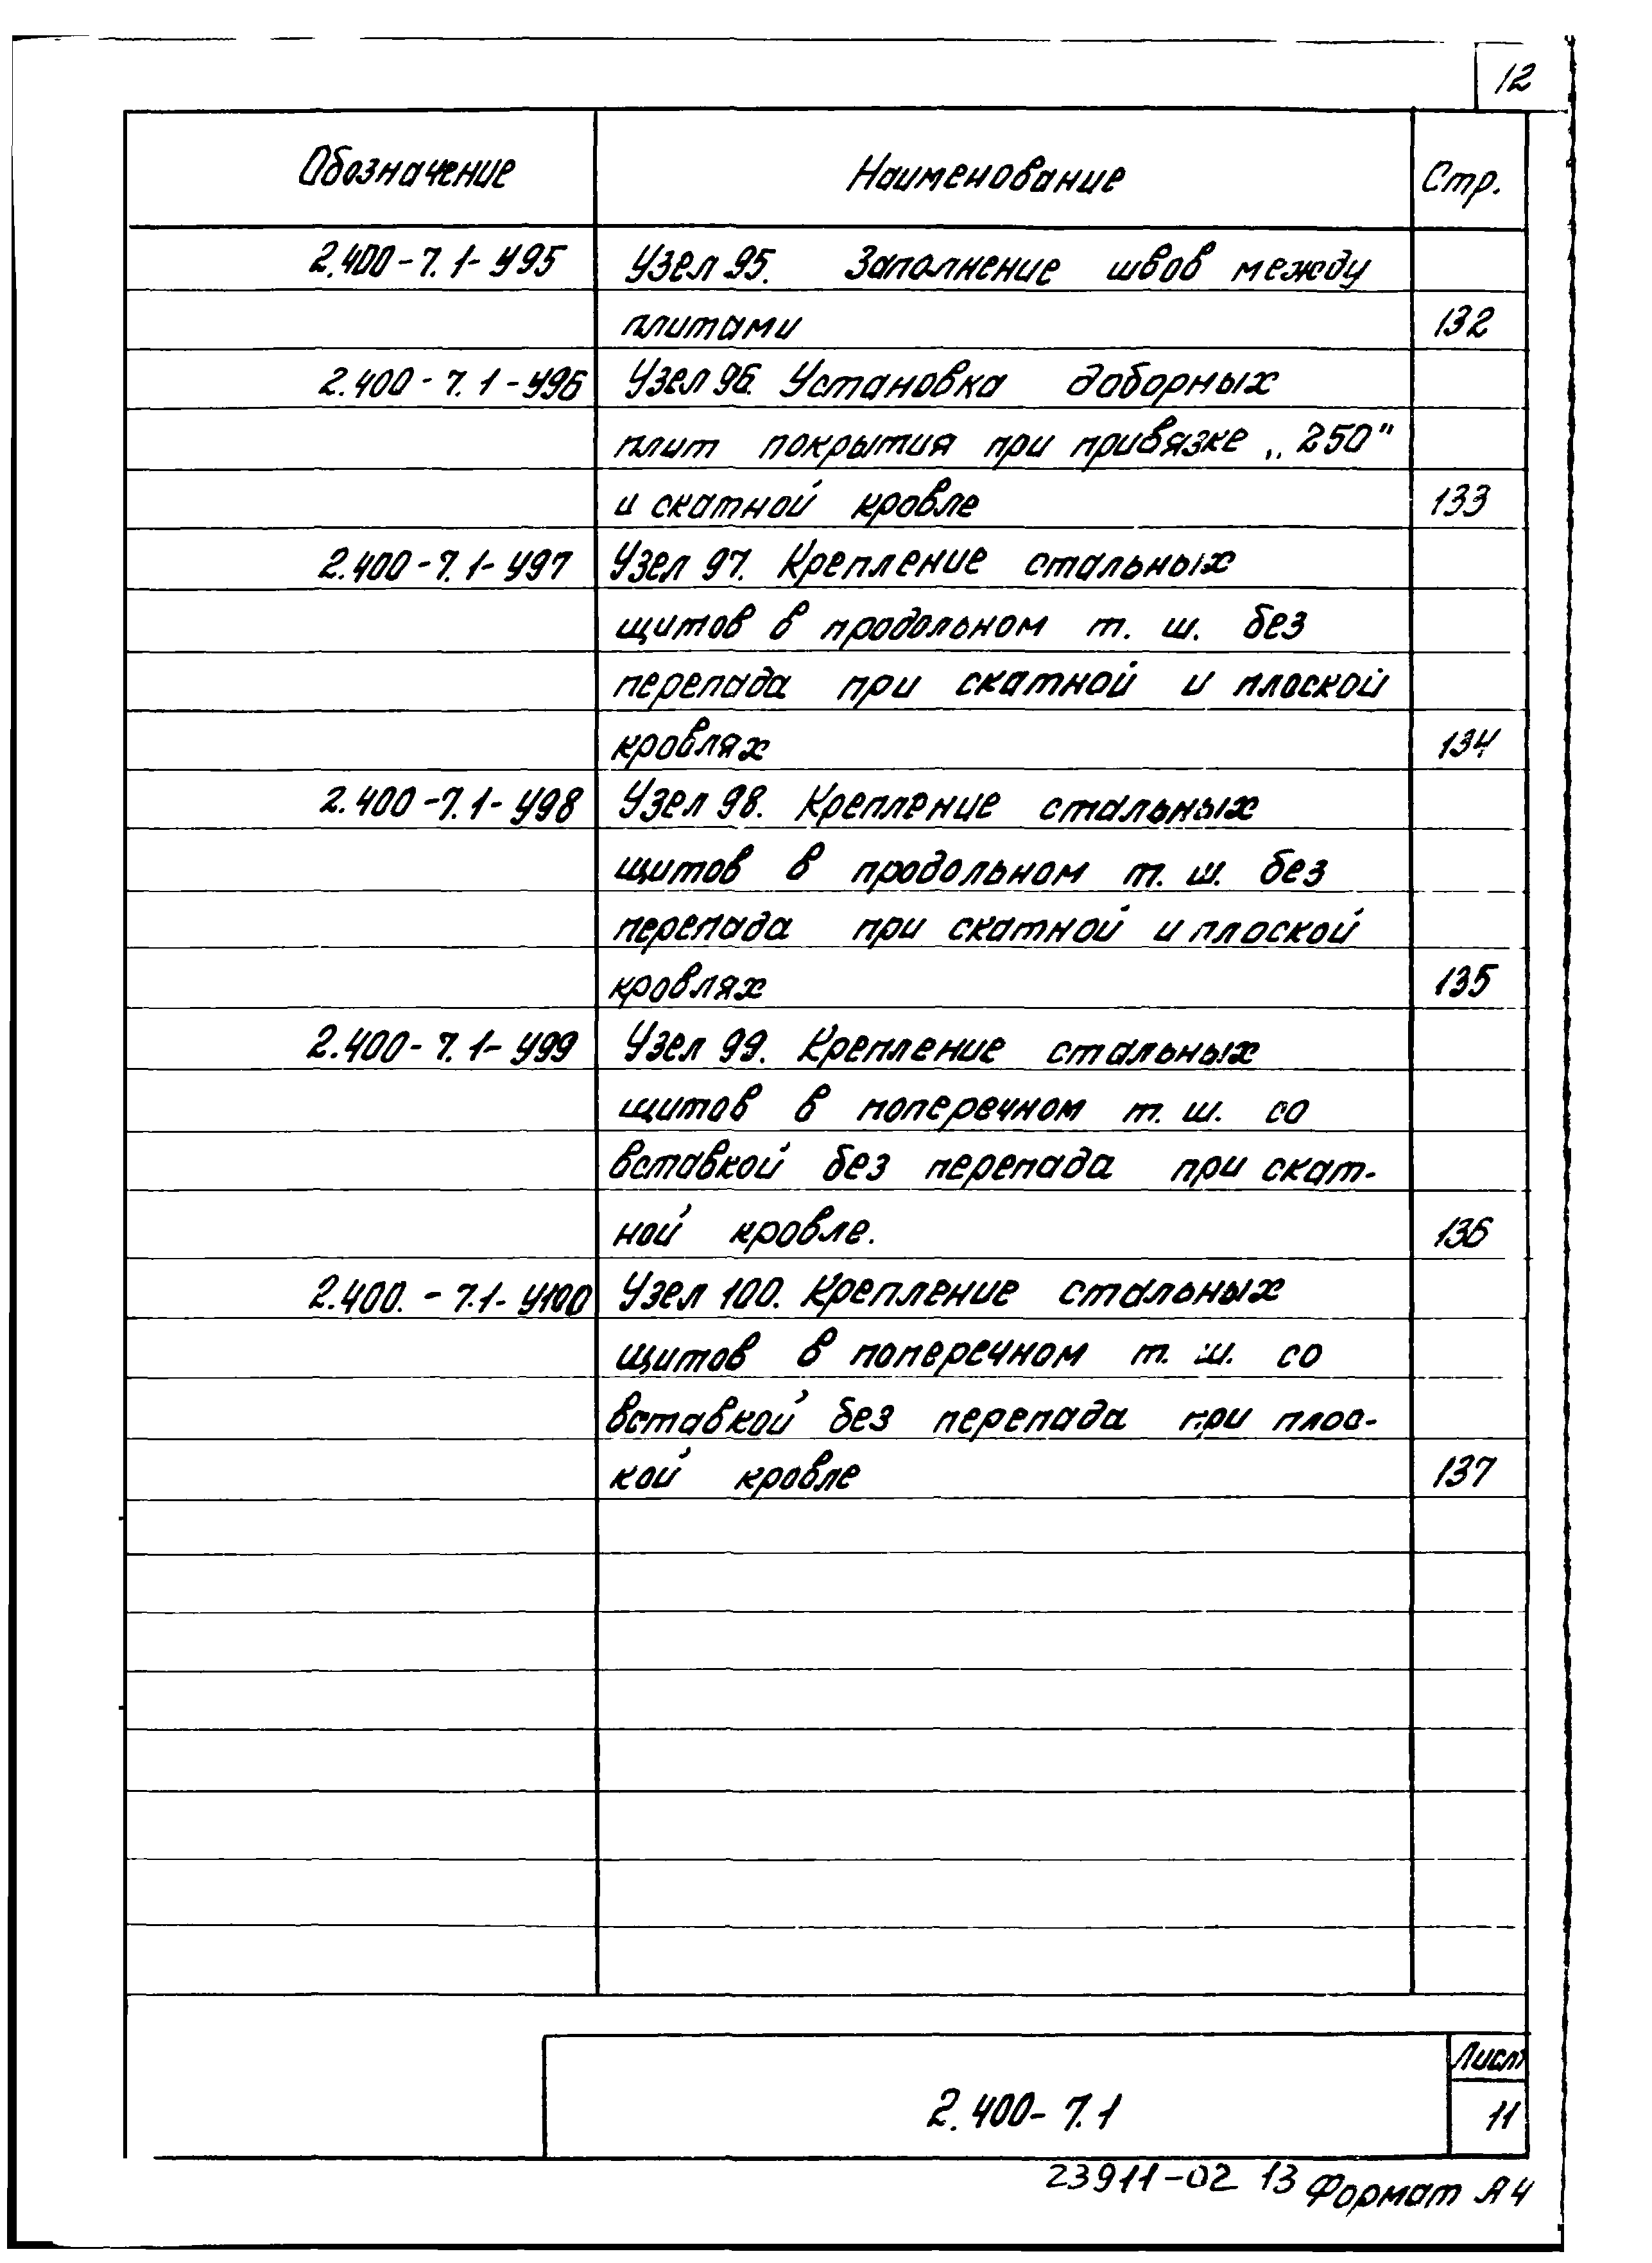 12
Обозначение Наименование Стр.
2.400-7.1-У95 Узел 95. Заполнение швов между
плитами 132
2.400-7.1-У96 Узел 96. Установка доборных
плит покрытия при привязке „250"
и скатной кровле 133
2.400-7.1-У97 Узел 97. Крепление стальных
щитов в продольном т. ш. без
перепада при скатной и плоской
кровлях 134
2.400-7.1-У98 Узел 98. Крепление стальных
щитов в продольном т. ш. без
перепада при скатной и плоской
кровлях 135
2.400-7.1-У99 Узел 99. Крепление стальных
щитов в поперечном т. ш. со
вставкой без перепада при скат-
ной кровле. 136
2.400.-7.1-У100 Узел 100. Крепление стальных
щитов в поперечном т. ш. со
вставкой без перепада при плос-
кой кровле 137
Лист
2.400-7.1 11
23911-02 13 Формат А4